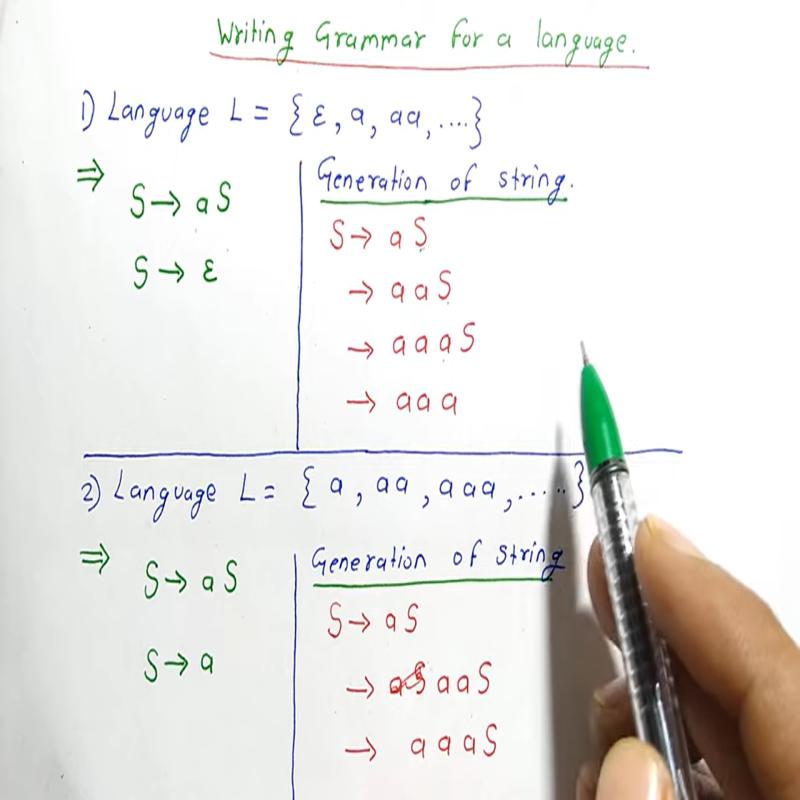 Writing Grammar for a language.
1) Language L = {ε, a, aa, ....}
⇒
S → aS
S → ε
Generation of string.
S → aS
→ aaS
→ aaaS
→ aaa
2) Language L = {a, aa, aaa, .....}
⇒
S → aS
S → a
Generation of string
S → aS
→ aaS
→ aaaS